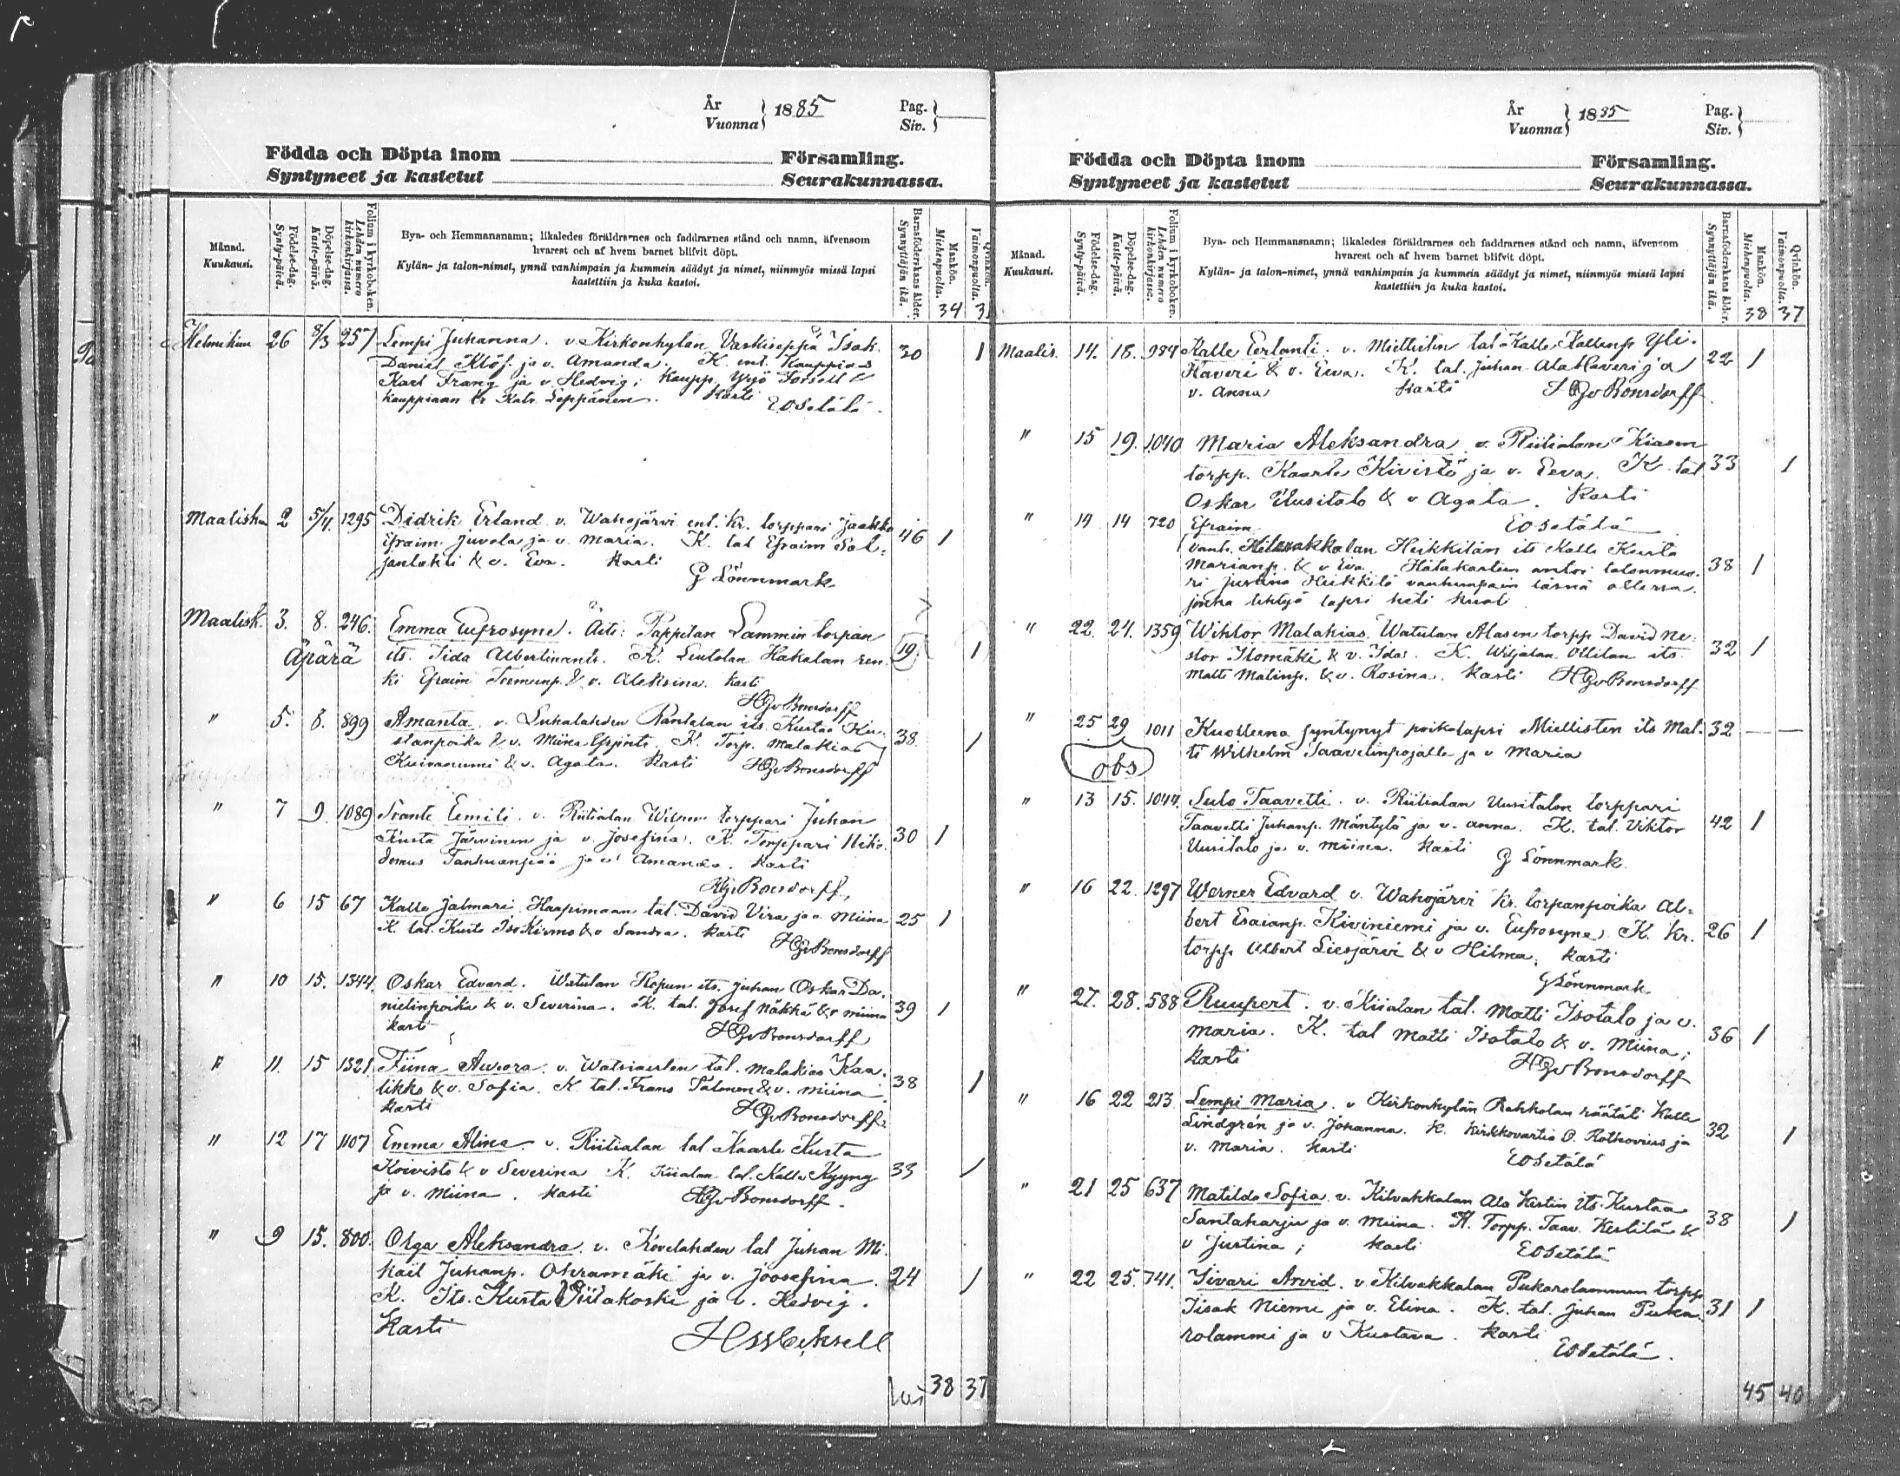 År
Vuonna } 1885
Pag.
Siv. }
Födda och Döpta inom Församling.
Syntyneet ja kastetut Seurakunnassa.
Månad. Kuukausi.
Födelse-dag. Synty-päivä.
Döpelse-dag. Kaste-päivä.
Folium i kyrkoboken. Lehden numero kirkonkirjassa.
Bya- och Hemmansnamn; likaledes föräldrarnes och faddrarnes stånd och namn, äfvensom
hvarest och af hvem barnet blifvit döpt.
Kylän- ja talon-nimet, ynnä vanhimpain ja kummein säädyt ja nimet, niinmyös missä lapsi
kastettiin ja kuka kastoi.
Barnaföderskans ålder. Synnyttäjän ikä.
Mankön. Miehenpuolta. 34
Qvinkön. Vaimonpuolta.
Helmikuu 26 8/3 257 Lempi Juhanna. v. Kirkonkylän Isak 30 1
Daniel Klöf ja v. Amanda. K. ent. Kauppias
Karl Franz ja v. Hedvig; Kaupp. Yrjö Forsell &
kauppiaan Leppänen. Kasti
EOSetälä.
Maalisk. 2 5/4 1295 Didrik Erland v. Wahojärvi ent. kr. torppari Jaakko 46 1
Efraim Juvela ja v. Maria. K. tal Efraim
& v. Eva. Kasti
G Lönnmark
Maalisk. 3. 8. 246. Emma Eufrosyne. Äiti: Pappilan Lammin torpan 19. 1
Äpärä its. Iida Albertinantr. K. Hakalan ren-
ki Efraim & v. Aleksina. Kasti
HGvBonsdorff
" 5. 8. 899 Amanta v. Luhalahden Rantalan its. Kustaa Ku- 38 1
stanpoika & v. Miina K. Torp. Malakias
& v. Agata. Kasti HGvBonsdorff
" 7 9 1089 Svante Eemili v. Riitialan torppari Juhan 30 1
Kusta Järvinen ja v. Josefina. K. Torppari Niko-
demus Tanhuanpää ja v. Amanda. Kasti
HGvBonsdorff
" 6 15 67 Kalle Jalmari Haapimaan tal. David Vira ja v. Miina 25 1
K. tal. Kusti & v Sandra. Kasti
HGvBonsdorff
" 10 15. 1344 Oskar Edvard. Watulan its. Juhan Oskar Da- 39 1
nielinpoika & v. Severina. K. tal. Josef Näkki & v Miina
kasti HGvBonsdorff
" 11. 15 1321 Fiina Aurora v. tal. Malakias Kaa- 38 1
likko & v. Sofia. K. tal. Frans Salonen & v. Miina
kasti HGvBonsdorff
" 12 17 1107 Emma Alina v. Riitialan tal. Kaarle Kusta 33 1
Koivisto & v Severina K. Kiialan tal. Kalle Kyyny
ja v. Miina. Kasti HGvBonsdorff.
" 9 15. 800. Olga Aleksandra. v. Kovelahden tal Juhan Mi- 24 1
kail Juhanp. Ohramäki ja v. Joosefina.
K. Its. Kusta Viilakoski ja v. Hedvig.
Kasti
38 37
År
Vuonna } 1885
Pag.
Siv. }
Födda och Döpta inom Församling.
Syntyneet ja kastetut Seurakunnassa.
Månad. Kuukausi.
Födelse-dag. Synty-päivä.
Döpelse-dag. Kaste-päivä.
Folium i kyrkoboken. Lehden numero kirkonkirjassa.
Bya- och Hemmansnamn; likaledes föräldrarnes och faddrarnes stånd och namn, äfvensom
hvarest och af hvem barnet blifvit döpt.
Kylän- ja talon-nimet, ynnä vanhimpain ja kummein säädyt ja nimet, niinmyös missä lapsi
kastettiin ja kuka kastoi.
Barnaföderskans ålder. Synnyttäjän ikä.
Mankön. Miehenpuolta. 38
Qvinkön. Vaimonpuolta. 37
Maalis. 14. 18. 984 Kalle Eerlanti. v. Miettisten tal Kalle Kallenp Yli- 22 1
Haveri & v. Eeva. K. tal. Juhan Ala Haveri ja
v. Anna Kasti HGvBonsdorff
" 15 19. 1040 Maria Aleksandra v. Riitialan Kiasen 33 1
torpp. Kaarle Kivistö ja v. Eeva. K. tal.
Oskar Uusitalo & v Agata. Kasti
EOSetälä
" 14 14 720 Efraim
vanh. Heikkilän its Kalle Kusta 38 1
Marianp. & v Eva. Hätäkasteen antoi talonmuo-
ri Justina Heikkilä vanhempain läsnä ollessa.
jonka tehtyä lapsi heti kuoli.
" 22. 24. 1359 Wihtor Malakias. Watulan Alasen torpp David Ne- 32 1
stor Isomäki & v. Ida. K. Wiljalan Ollilan its.
Matti Matinp. & v. Rosina. Kasti HGvBonsdorff
" 25 29 1011 Kuolleena syntynyt poikalapsi Miettisten its Mat- 32 — —
obs ti Wilhelm Taavetinpojalle ja v Maria
" 13 15. 1044. Sulo Taavetti. v. Riitialan Uusitalon torppari 42 1
Taavetti Juhanp. Mäntylä ja v. Anna. K. tal. Viktor
Uusitalo ja v. Miina. Kasti G Lönnmark.
" 16 22. 1297 Werner Edvard v. Wahojärvi kr. torpanpoika Al- 26 1
bert Esaianp. Kiviniemi ja v. Eufrosyne. K. kr.
torpp Albert Liesjärvi & v Hilma. Kasti
G Lönnmark
" 27. 28. 588 Ruupert. v. Kiialan tal. Matti Isotalo ja v. 36 1
Maria. K. tal Matti Isotalo & v. Miina;
Kasti HGvBonsdorff
" 16 22 213 Lempi Maria. v Kirkonkylän Rahkolan räätäli Kalle 32 1
Lindgrén ja v. Johanna. K. Kirkkovartia O. Rothovius ja
v. Maria. Kasti EOSetälä
" 21 25 637 Matilda Sofia. v. Kilvakkalan Ala Kestin its. Kustaa 38 1
Santaharju ja v. Miina. K. Torpp. Taav. Kestilä &
v Justina; Kasti EOSetälä
" 22 25. 741. Iivari Arvid. v. Kilvakkalan Pukarolammen torpp 31 1
Iisak Niemi ja v. Elina. K. tal. Juhan Puka-
rolammi ja v Kustava. Kasti
EOSetälä.
45 40